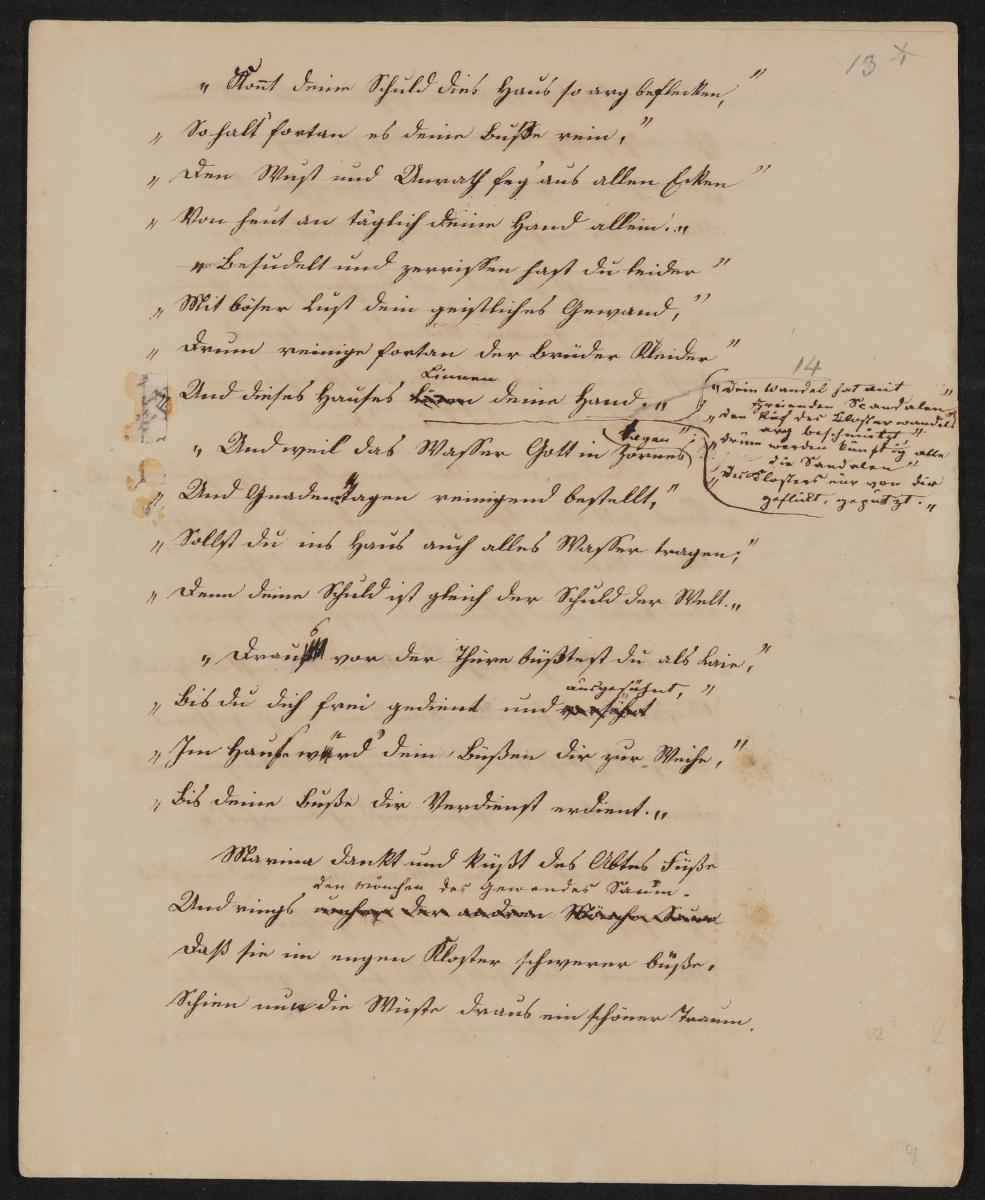 13 +
„ Konnt deine Schuld dies Haus so arg beflecken, "
„ So halt' fortan es deine Buße rein, "
„ Den Wust und Unrath feg' aus allen Ecken "
„ Von heut an täglich deine Hand allein. „
„ Besudelt und zerrissen hast du leider "
„ Mit böser Lust dein geistliches Gewand, "
„ Drum reinige fortan der Brüder Kleider "
Linnen
„ Und dieses Hauses deine Hand. „
14
„ Dein Wandel hat mit "
schreienden Scandalen
„ Den Ruf des Klosterwandels
arg beschmutzt "
„ Drum werden künftig alle
die Sandalen "
„ Des Klosters nur von dir
geflickt, geputzt. „
„ Und weil das Wasser Gott in Zornes
tagen "
„ Und Gnadentagen reinigend bestellt, "
„ Sollst du ins Haus auch alles Wasser tragen; "
„ Denn deine Schuld ist gleich der Schuld der Welt. „
„ Drauß vor der Thüre büßtest du als Laie, "
ausgesühnt, "
„ Bis du dich frei gedient und versühnt
„ Im Hause würd' dein Büßen dir zur Weihe, "
„ Bis deine Buße dir Verdienst erdient. „
Marina dankt und küßt des Abtes Füße
den Mönchen des Gewandes Saum.
Und rings umher der andren Mönche Saum
Daß sie im engen Kloster schwerer büße,
Schien nun die Wüste draus ein schöner Traum.